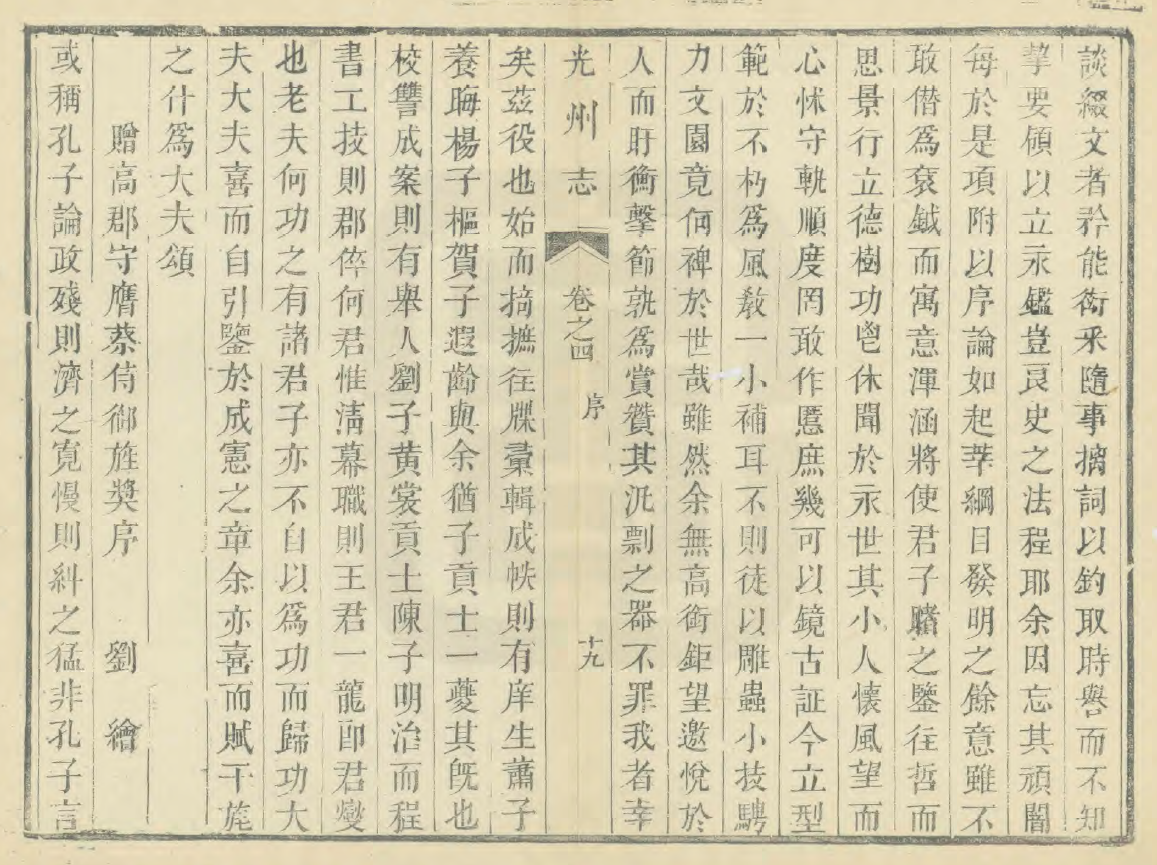 談綴文者矜能衒采隨事摛詞以釣取時譽而不知
挈要領以立永鑑豈良史之法程耶余因忘其頑闇
每於是項附以序論如起莘綱目發明之餘意雖不
敢僭爲袞鉞而寓意渾涵將使君子瞻之鑒往哲而
思景行立德樹功鬯休聞於永世其小人懷風望而
心怵守軌順度罔敢作慝庶幾可以鏡古証今立型
範於不朽爲風敎一小補耳不則徒以雕蟲小技騁
力文園竟何裨於世哉雖然余無高衒鉅望邀悅於
人而盱衡擊節孰爲賞贊其汎剽之器不罪我者幸
光州志 卷之四 序 十九
矣茲役也始而掎摭往牒彚輯成帙則有庠生蕭子
養晦楊子樞賀子遐齡與余猶子貢士一夔其旣也
校讐成案則有舉人劉子黃裳貢士陳子明治而程
書工技則郡倅何君惟淸幕職則王君一龍郎君燮
也老夫何功之有諸君子亦不自以爲功而歸功大
夫大夫喜而自引鑒於成憲之章余亦喜而賦干旄
之什爲大夫頌
贈高郡守膺蔡侍御旌獎序 劉 繪
或稱孔子論政殘則濟之寬慢則糾之猛非孔子言